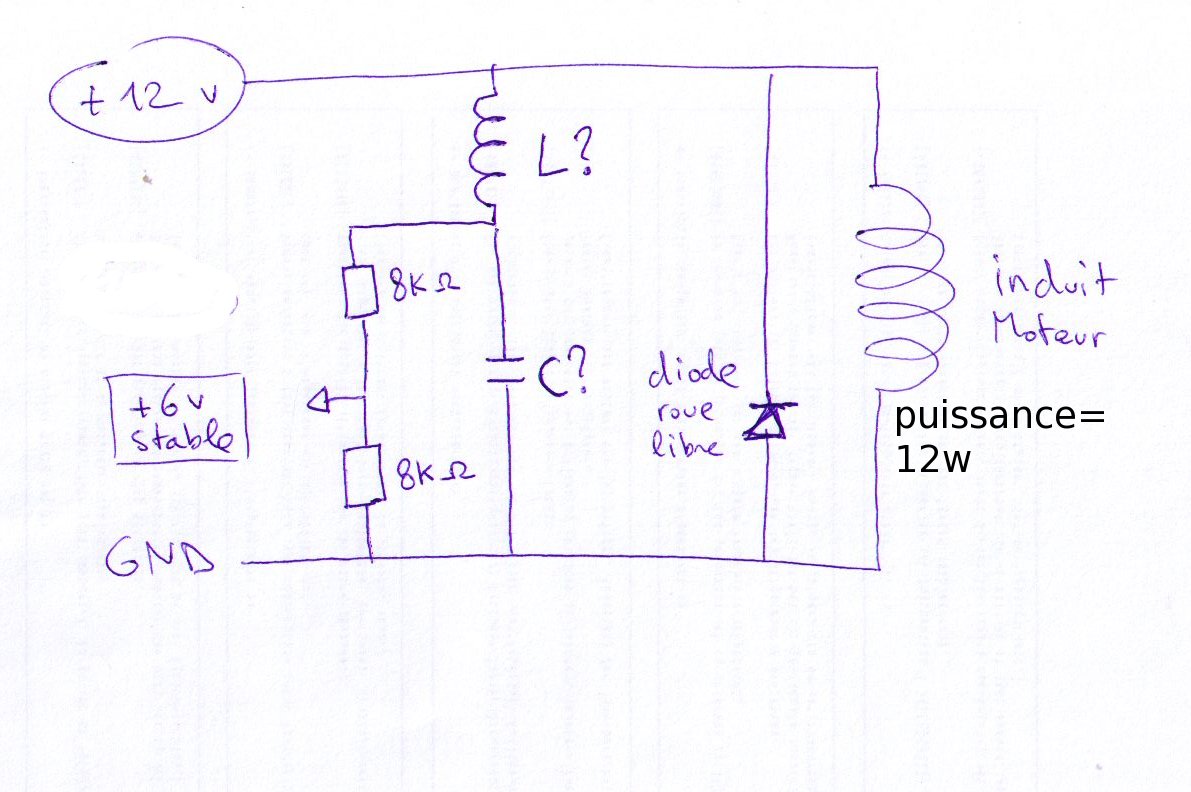 + 12 v
L?
8KΩ
C?
+6v
stable
8KΩ
GND
diode
roue
libre
induit
Moteur
puissance=
12w